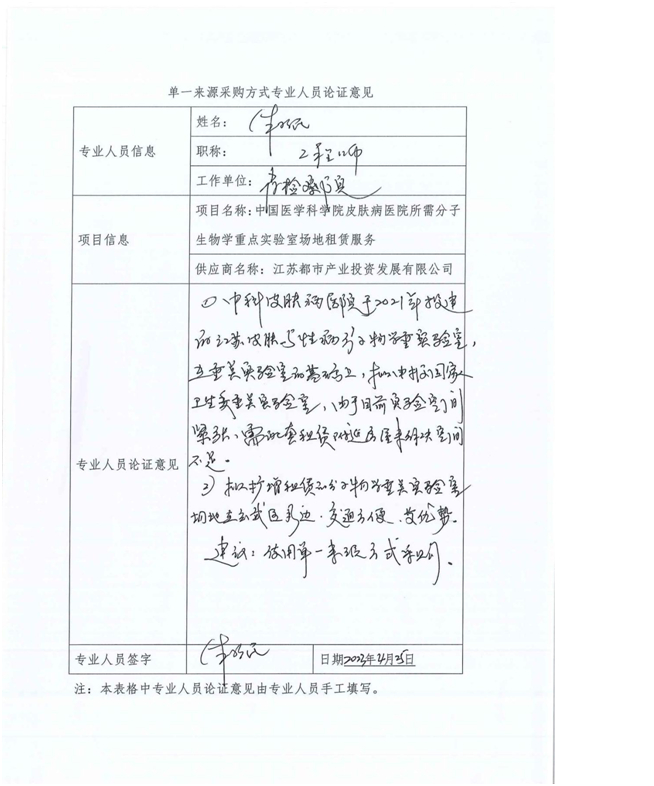 单一来源采购方式专业人员论证意见
专业人员信息
姓名：
职称： 工程师
工作单位：
项目信息
项目名称：中国医学科学院皮肤病医院所需分子
生物学重点实验室场地租赁服务
供应商名称：江苏都市产业投资发展有限公司
专业人员论证意见
① 中科皮肤病医院于2021年投建
的江苏皮肤与性病分子生物学重点实验室，
在重点实验室的基础上，拟申报国家
卫生委重点实验室，由于目前实验室空间
紧张，需配套租赁附近房屋来解决空间
不足。
2) 拟扩增租赁的分子生物学重点实验室
场地在玄武区 交通方便
建议：使用单一来源方式采购。
专业人员签字
日期2023年4月25日
注：本表格中专业人员论证意见由专业人员手工填写。